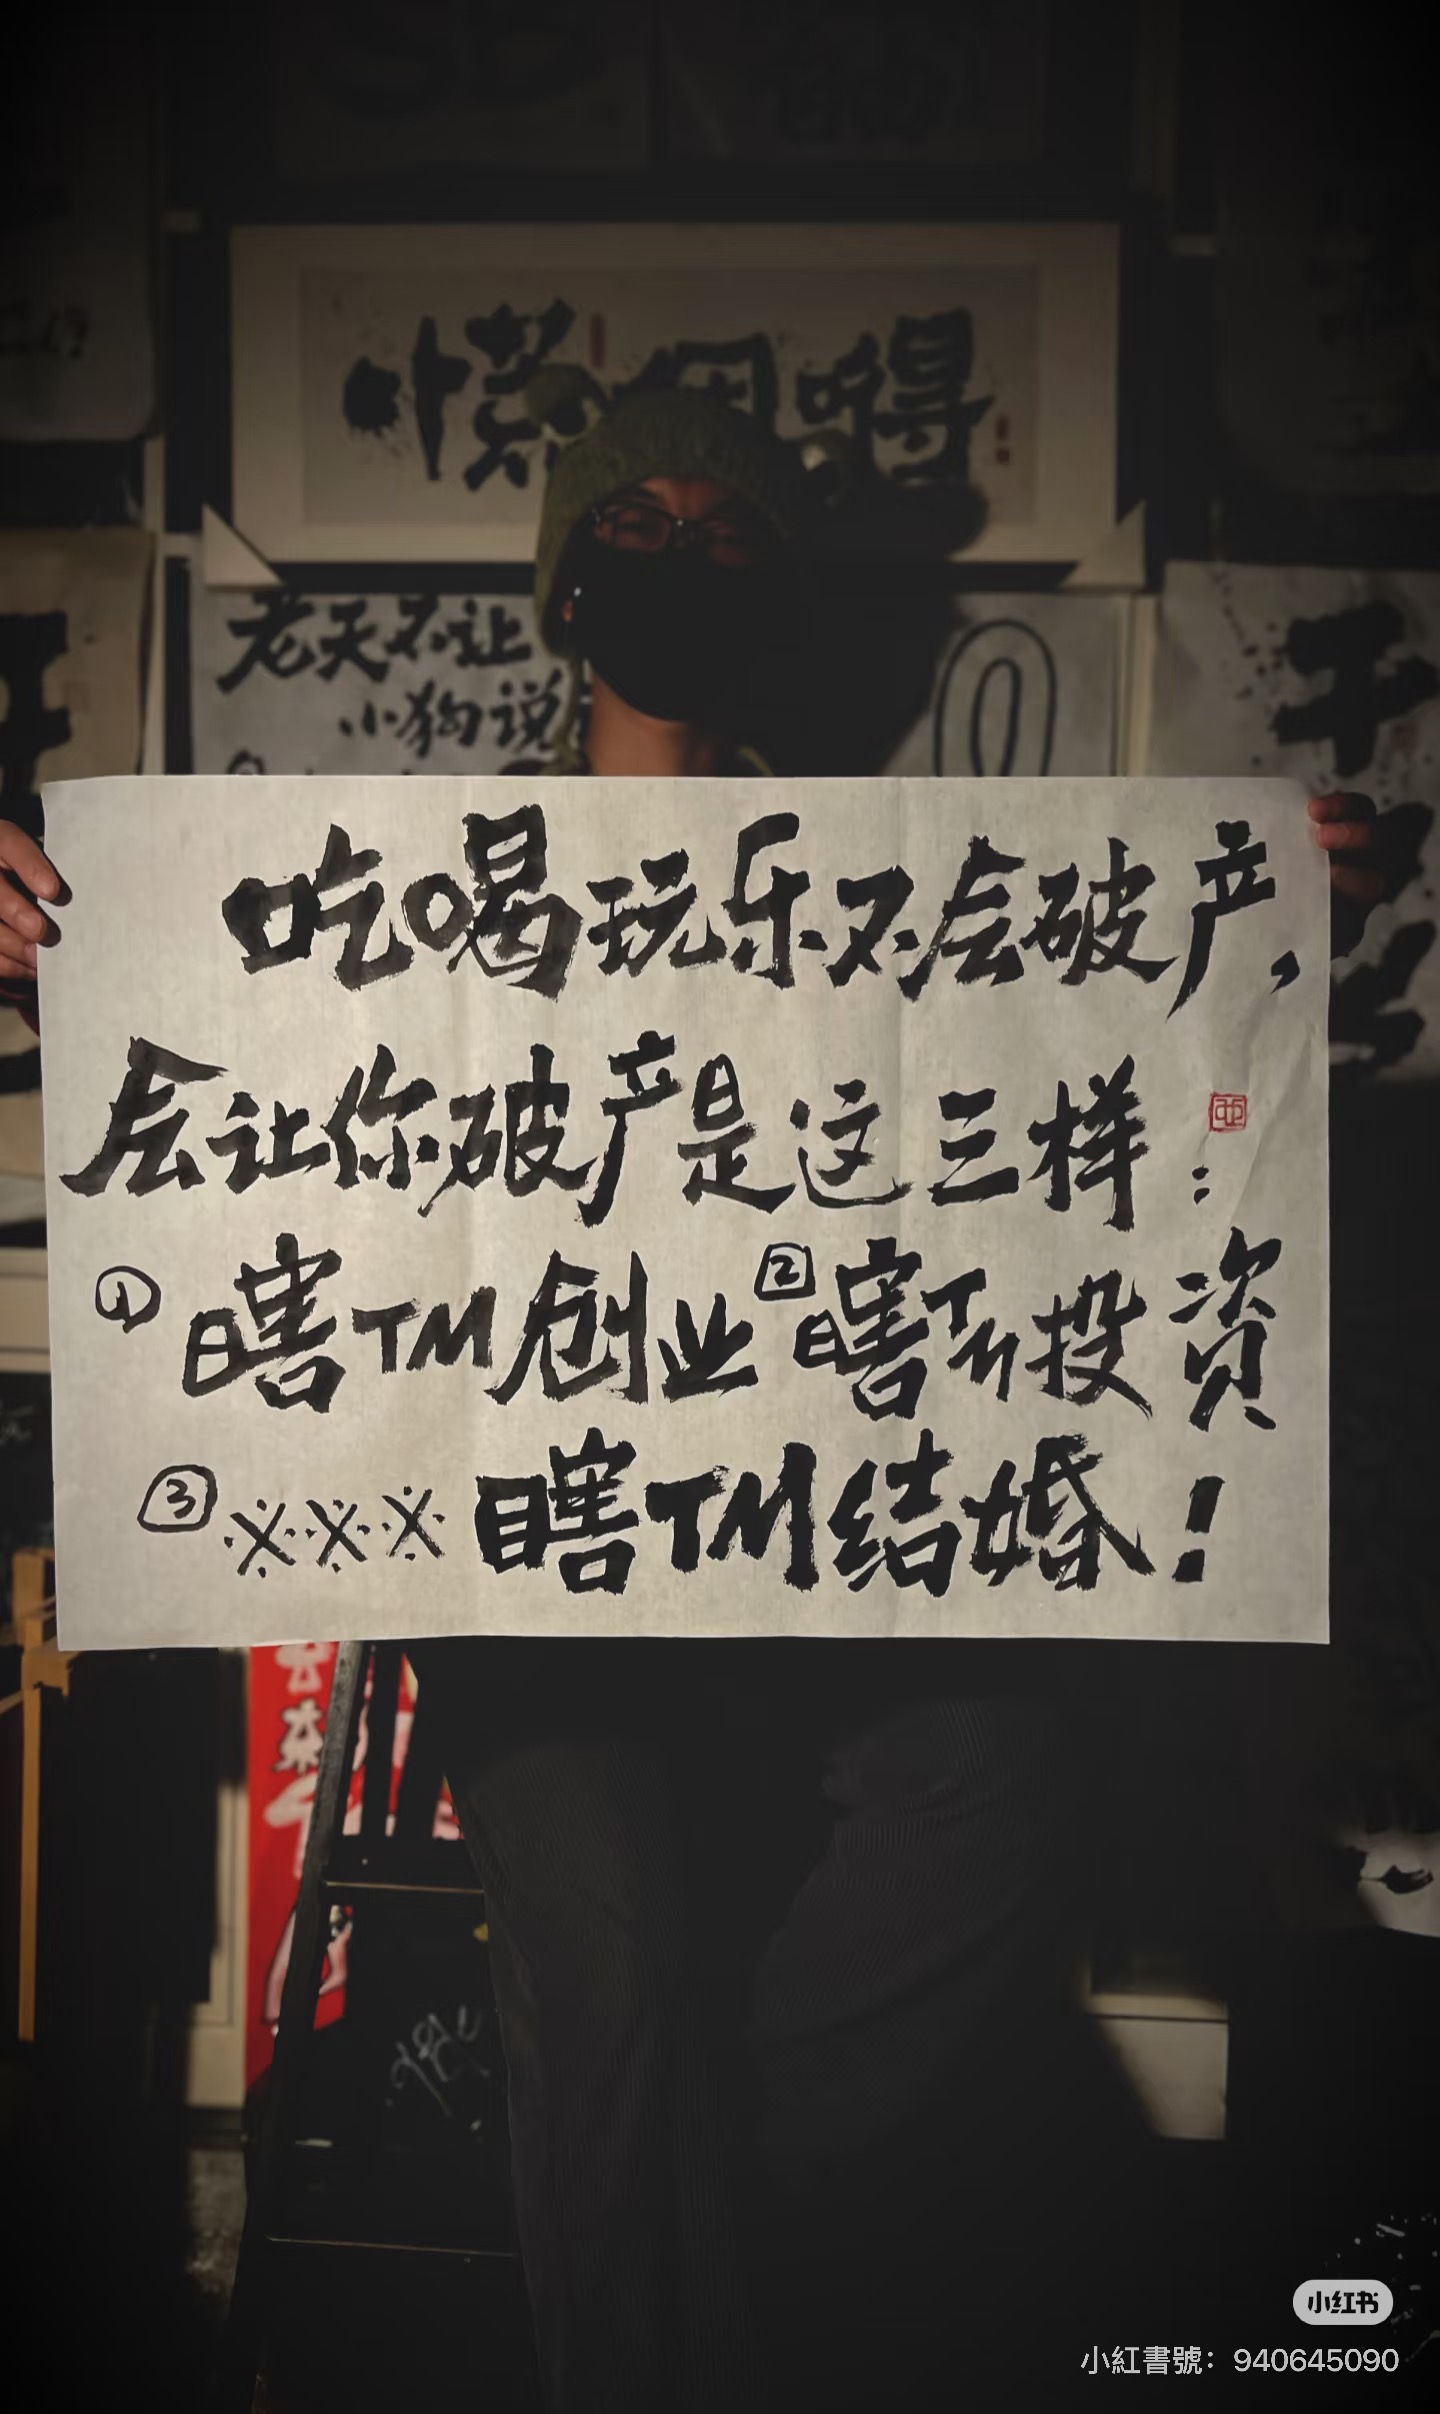 老天不让
小狗说
吃喝玩乐不会破产，
会让你破产是这三样：
①瞎TM创业②瞎TM投资
③※※※瞎TM结婚！
小红书
小紅書號：940645090